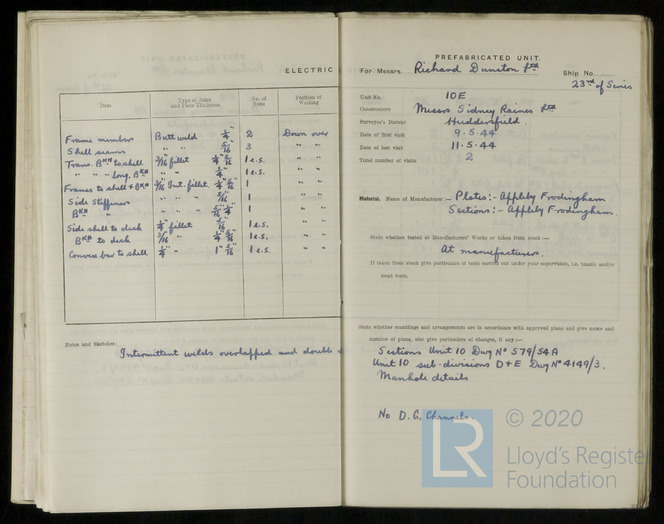 ELECTRIC
Item
Type of Joint and Plate Thickness
No. of Runs
Position of Welding
Frame member Butt weld 1/4" 2 Down over
Shell seams " " 5/16" 3 " "
Trans. BKH to shell 3/16 fillet 1/4" 5/16" 1 e.s. " "
" " " long. BKH " " 1/4" 1 e.s. " "
Frames to shell & BKH 3/16 Int. fillet 1/4" 5/16" 1 " "
Side Stiffeners " " " 5/16" 1 " "
BKH " " " " 5/16" 1/4" 1 " "
Side shell to deck 1/4" fillet 5/16" 1 e.s. " "
BKH to deck 3/16 " 1/4" 5/16" 1 e.s. " "
Convex bar to shell 1/4" " 1" 5/16" 1 e.s. " "
Notes and Sketches:
Intermittent welds overlapped and double
PREFABRICATED UNIT.
For Messrs. Richard Dunston Ltd Ship No.
23rd of Series
Unit No. 10E
Constructors Messrs Sidney Raines Ltd
Surveyor's District Huddersfield.
Date of first visit 9.5.44
Date of last visit 11.5.44
Total number of visits 2
Material. Name of Manufacturer:— Plates:- Appleby Frodingham
Sections:- Appleby Frodingham.
State whether tested at Manufacturers' Works or taken from stock:—
At manufacturers.
If taken from stock give particulars of tests carried out under your supervision, i.e. tensile and/or
bend tests.
State whether scantlings and arrangements are in accordance with approved plans and give name and
number of plans, also give particulars of changes, if any:—
Sections Unit 10 Dwg No 579/54A
Unit 10 sub-divisions D & E Dwg No 4149/3.
Manhole details
No D.G. Channels.
LR © 2020
Lloyd's Register
Foundation